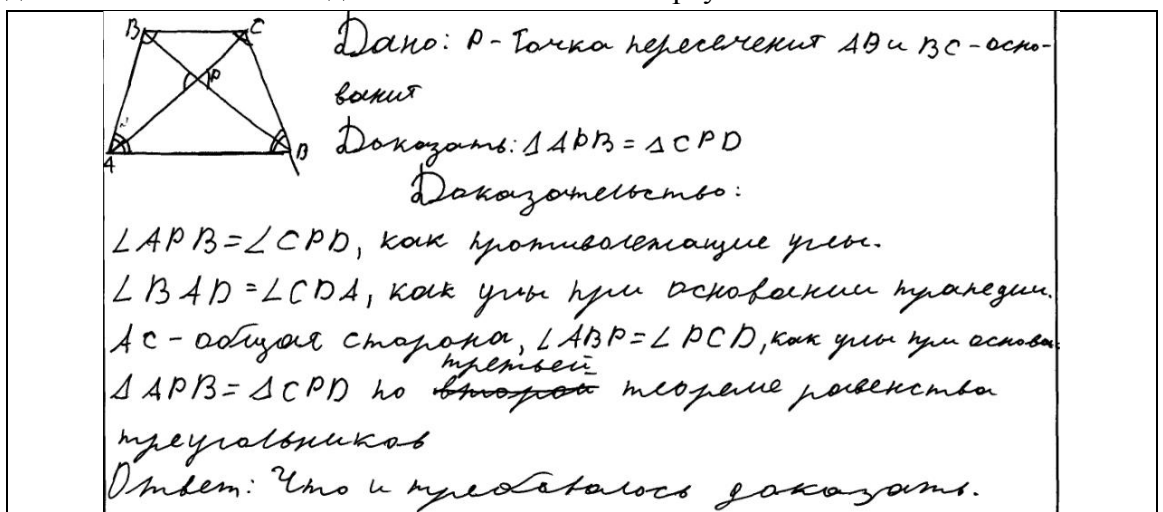 B C P A D
Дано: P - Точка пересечения AD и BC - осно-
вания
Доказать: ΔAPB = ΔCPD
Доказательство:
∠APB = ∠CPD, как противолежащие углы.
∠BAD = ∠CDA, как углы при основании трапеции.
AC - общая сторона, ∠ABP = ∠PCD, как углы при основа.
третьей
ΔAPB = ΔCPD по второй теореме равенства
треугольников
Ответ: Что и требовалось доказать.